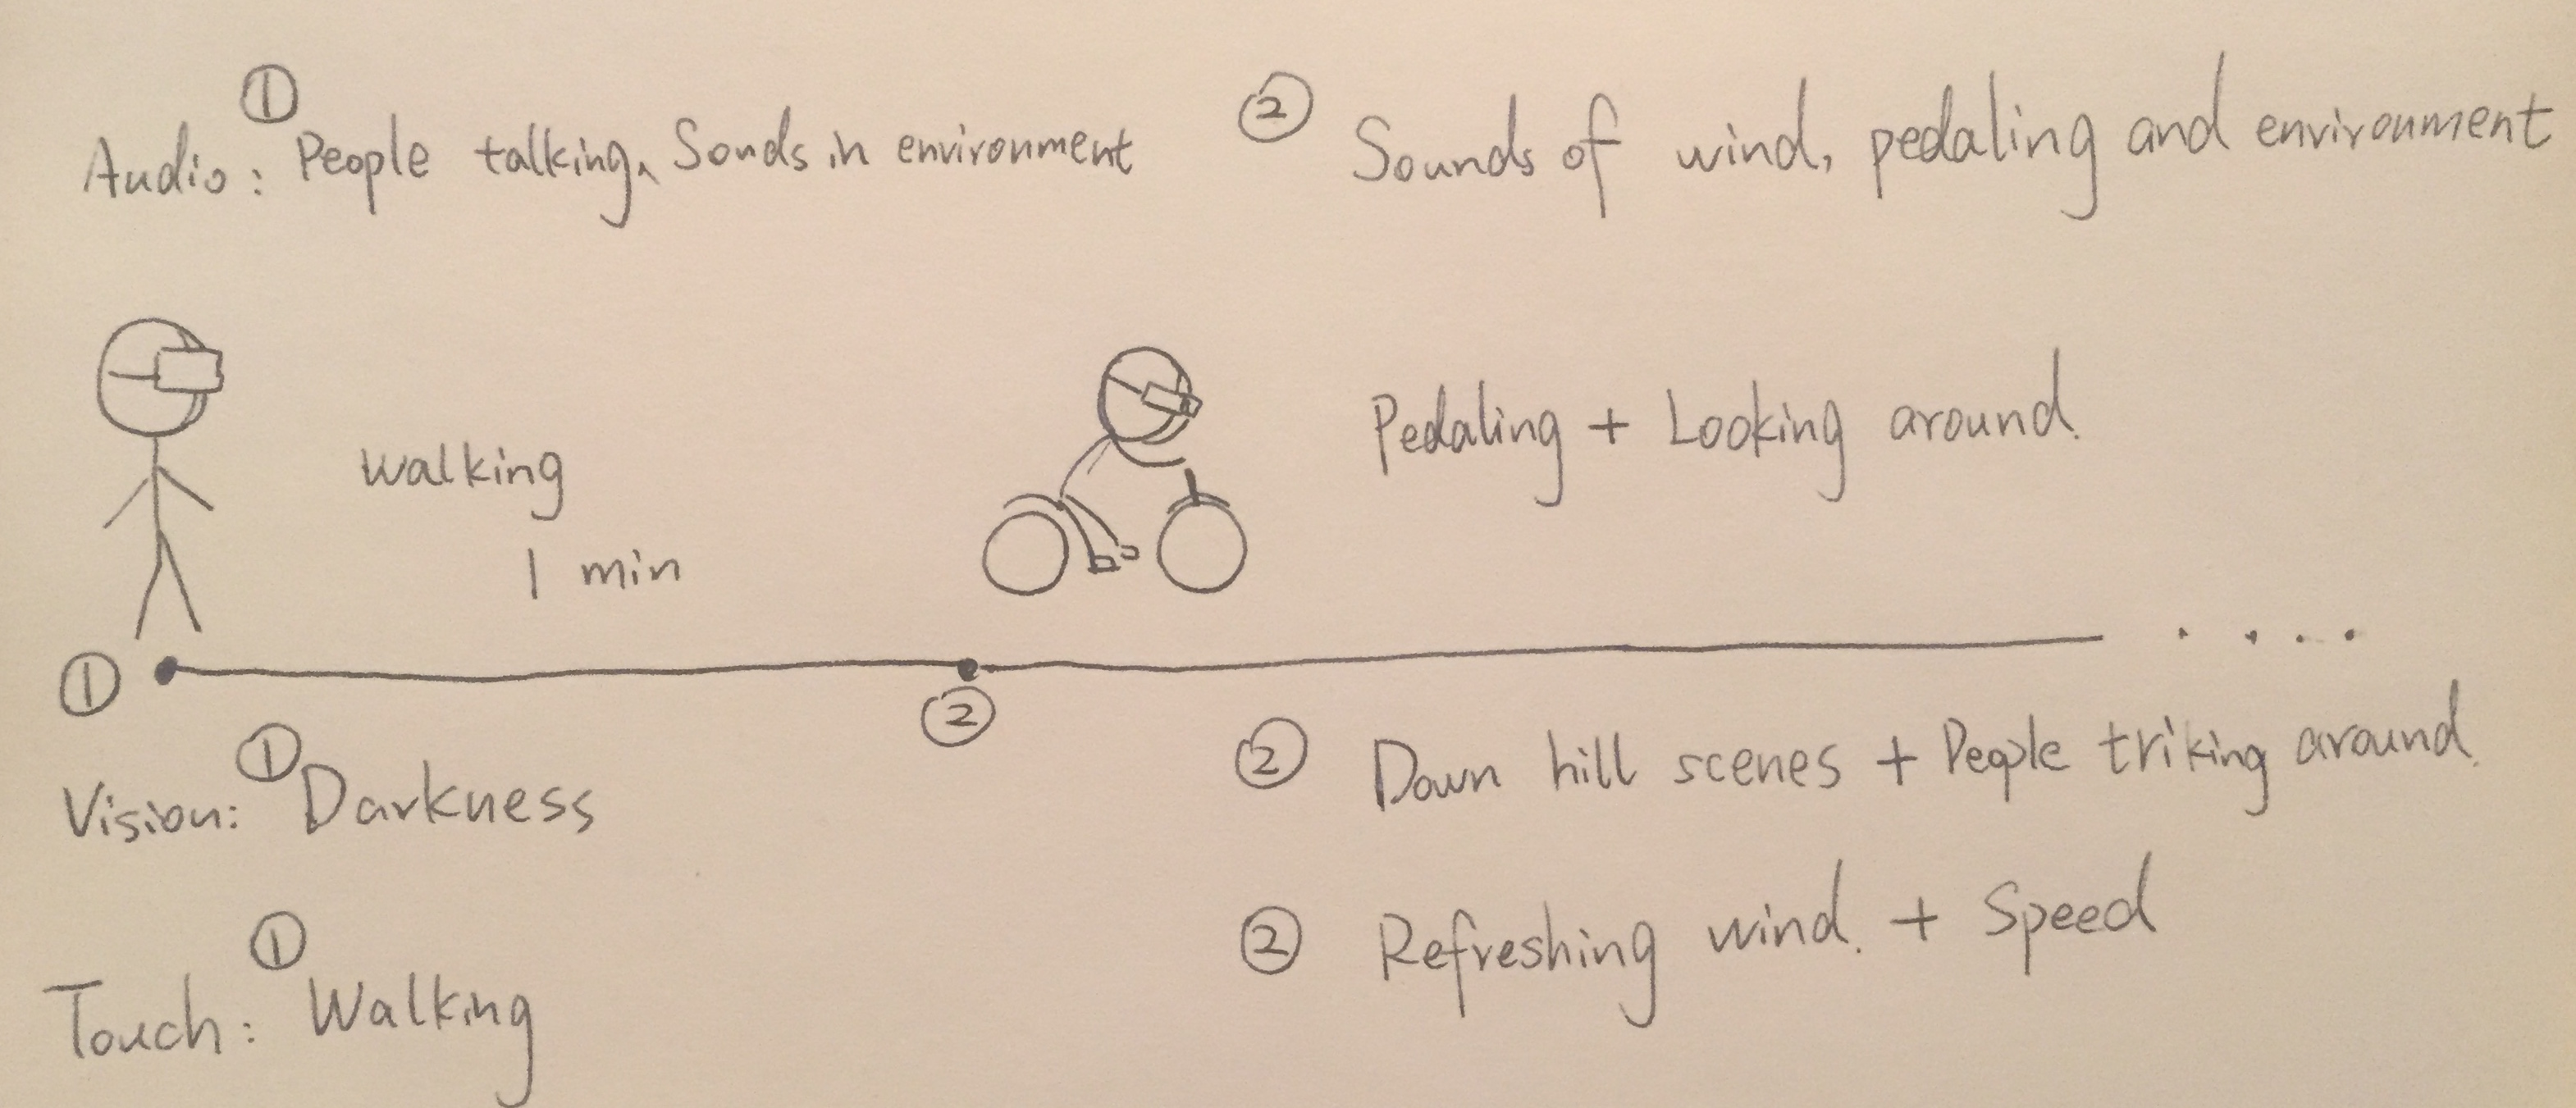 ①
Audio: People talking、Sonds in environment
② Sounds of wind, pedaling and environment
walking
1 min
Pedaling + Looking around.
①
②
①
Vision: Darkness
② Down hill scenes + People triking around.
①
Touch: Walking
② Refreshing wind. + Speed